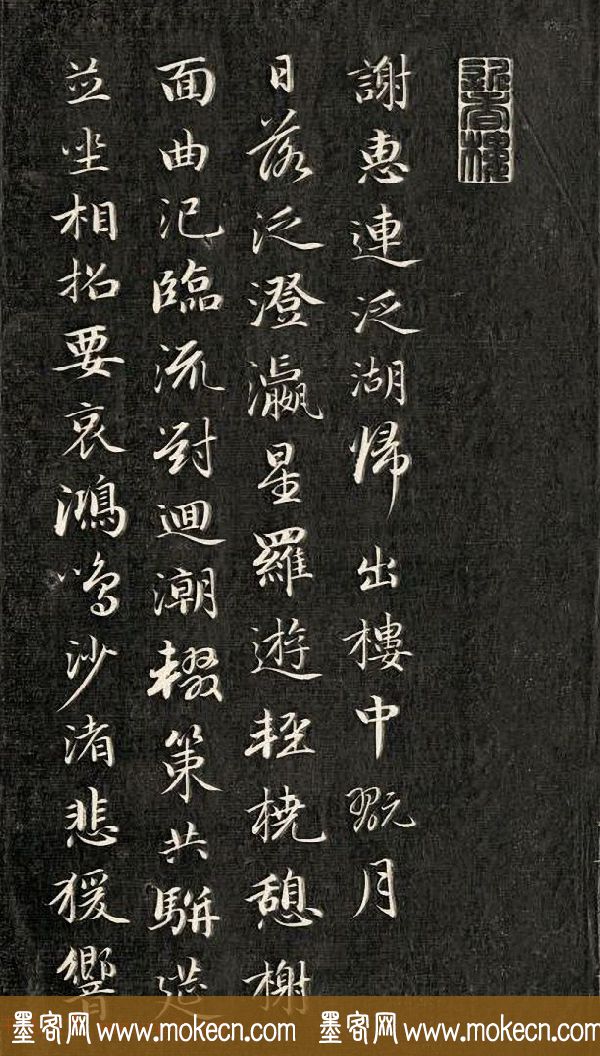 謝惠連泛湖歸出樓中翫月
日落泛澄瀛星羅遊輕橈憩榭
面曲汜臨流對迴潮輟策共駢筵
並坐相招要哀鴻鳴沙渚悲猨響
墨客网 www.mokecn.com 墨客网 www.mokecn.com